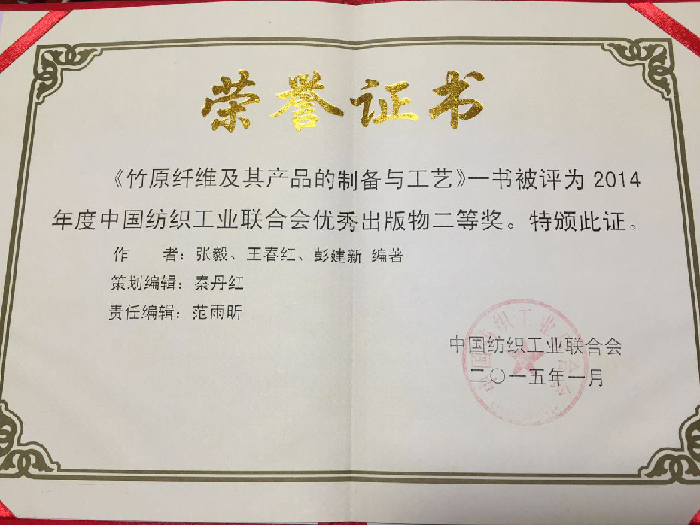 荣誉证书
《竹原纤维及其产品的制备与工艺》一书被评为 2014
年度中国纺织工业联合会优秀出版物二等奖。特颁此证。
作 者：张毅、王春红、彭建新 编著
策划编辑：秦丹红
责任编辑：范雨昕
中国纺织工业联合会
二〇一五年一月